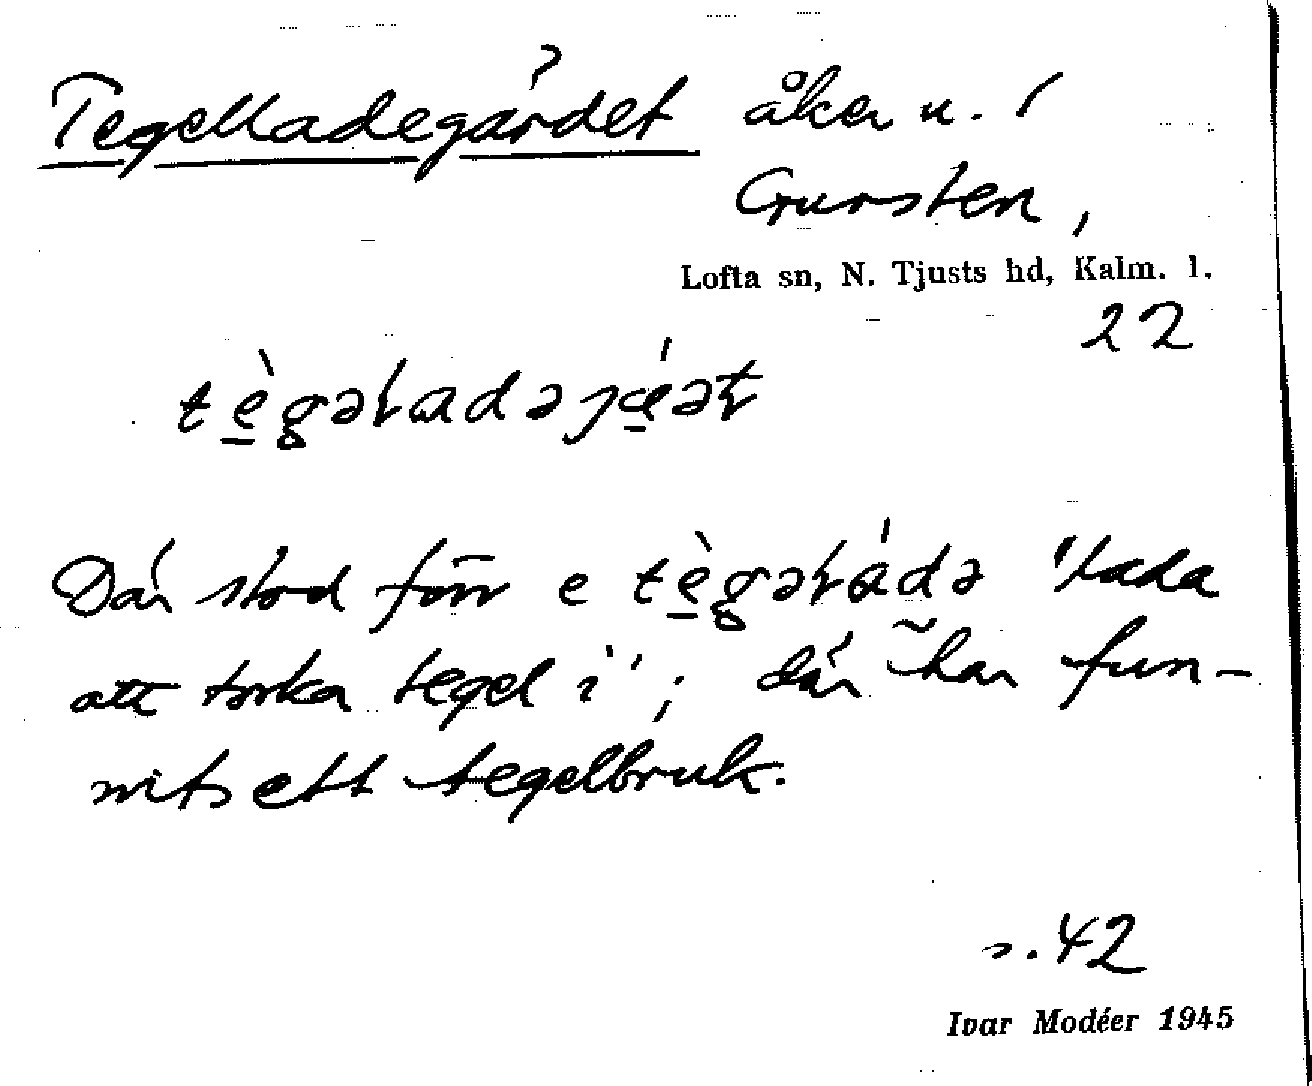 Tegelladegärdet åker u. /
Gursten,
Lofta sn, N. Tjusts hd, Kalm. l.
22
Där stod förr e 'lada
att torka tegel i'; där har fun-
nits ett tegelbruk.
s. 42
Ivar Modéer 1945